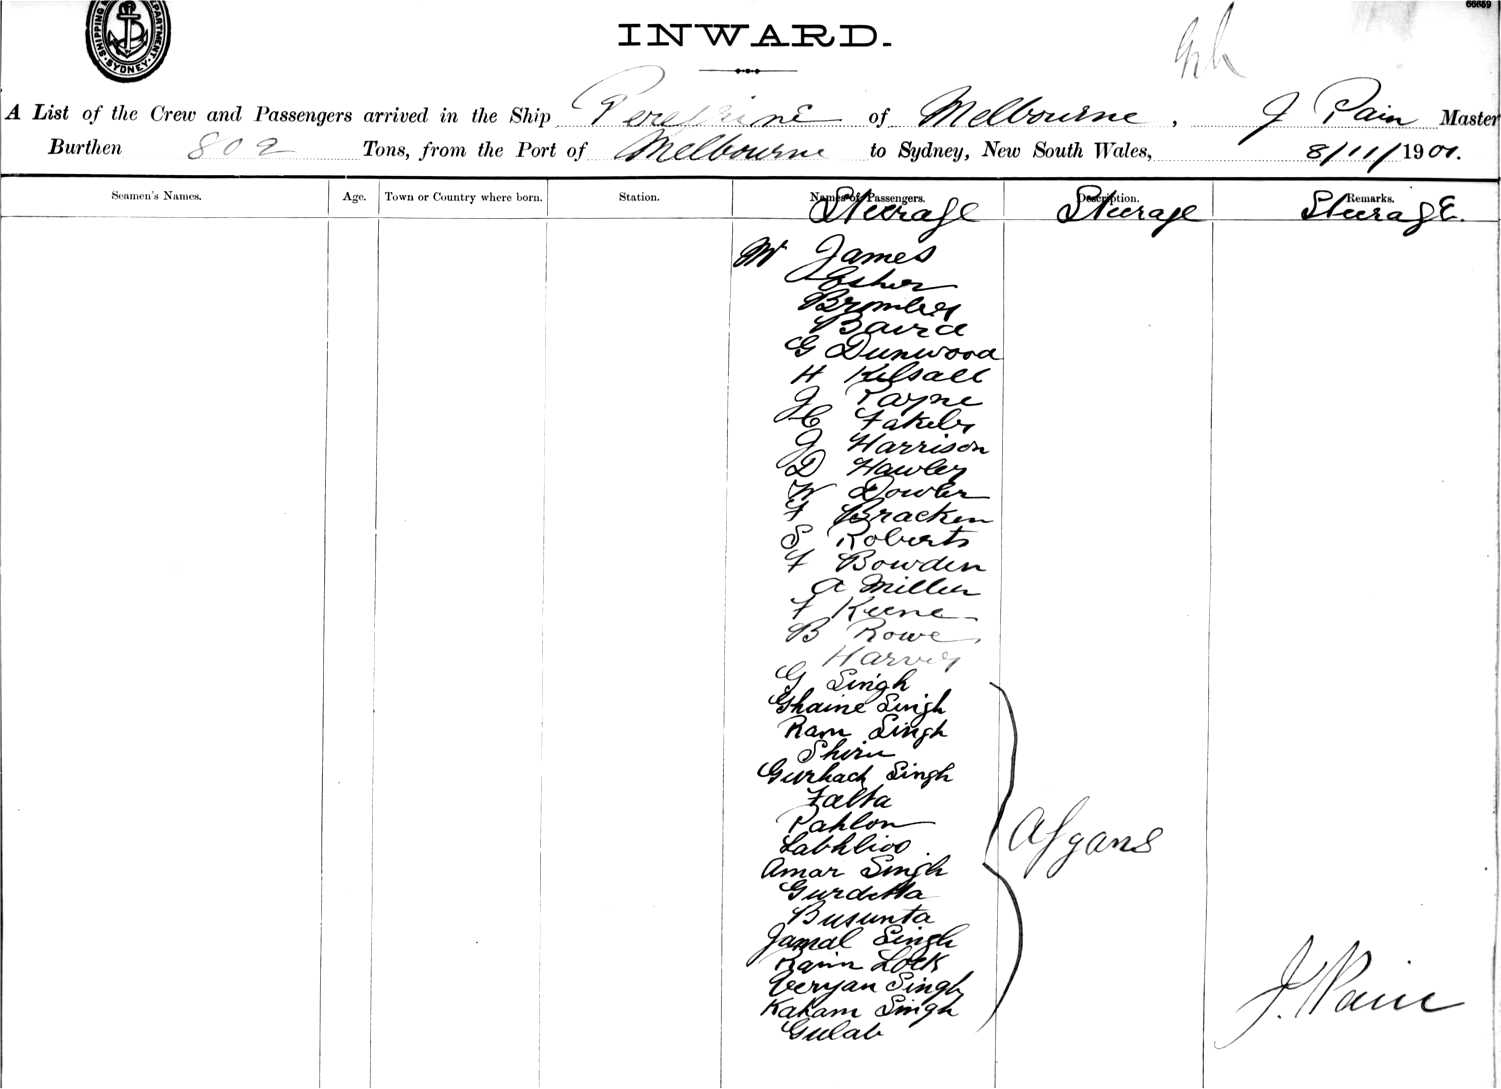 SHIPPING DEPARTMENT. SYDNEY.
66659
INWARD.
A List of the Crew and Passengers arrived in the Ship Peregrine of Melbourne, J Pain Master
Burthen 802 Tons, from the Port of Melbourne to Sydney, New South Wales, 8/11/1901.
Seamen's Names. Age. Town or Country where born. Station. Names of Passengers. Description. Remarks.
Steerage Steerage Steerage.
Mr James
Esher
Bromley
Baird
G Dunwood
H Kelsall
J Payne
C Fakely
J Harrison
D Hawley
W Dowler
F Bracken
S Roberts
F Bowden
A Miller
F Keene
B Rowe
Harvey
G Singh
Ghaine Singh
Ram Singh
Shiru
Gurhach Singh
Falta
Pahlon
Labhlioo
Afgans
Amar Singh
Gurditta
Busunta
Jamal Singh
Ramn Lock
Veryan Singh
Kaham Singh
J. Pain
Gulab